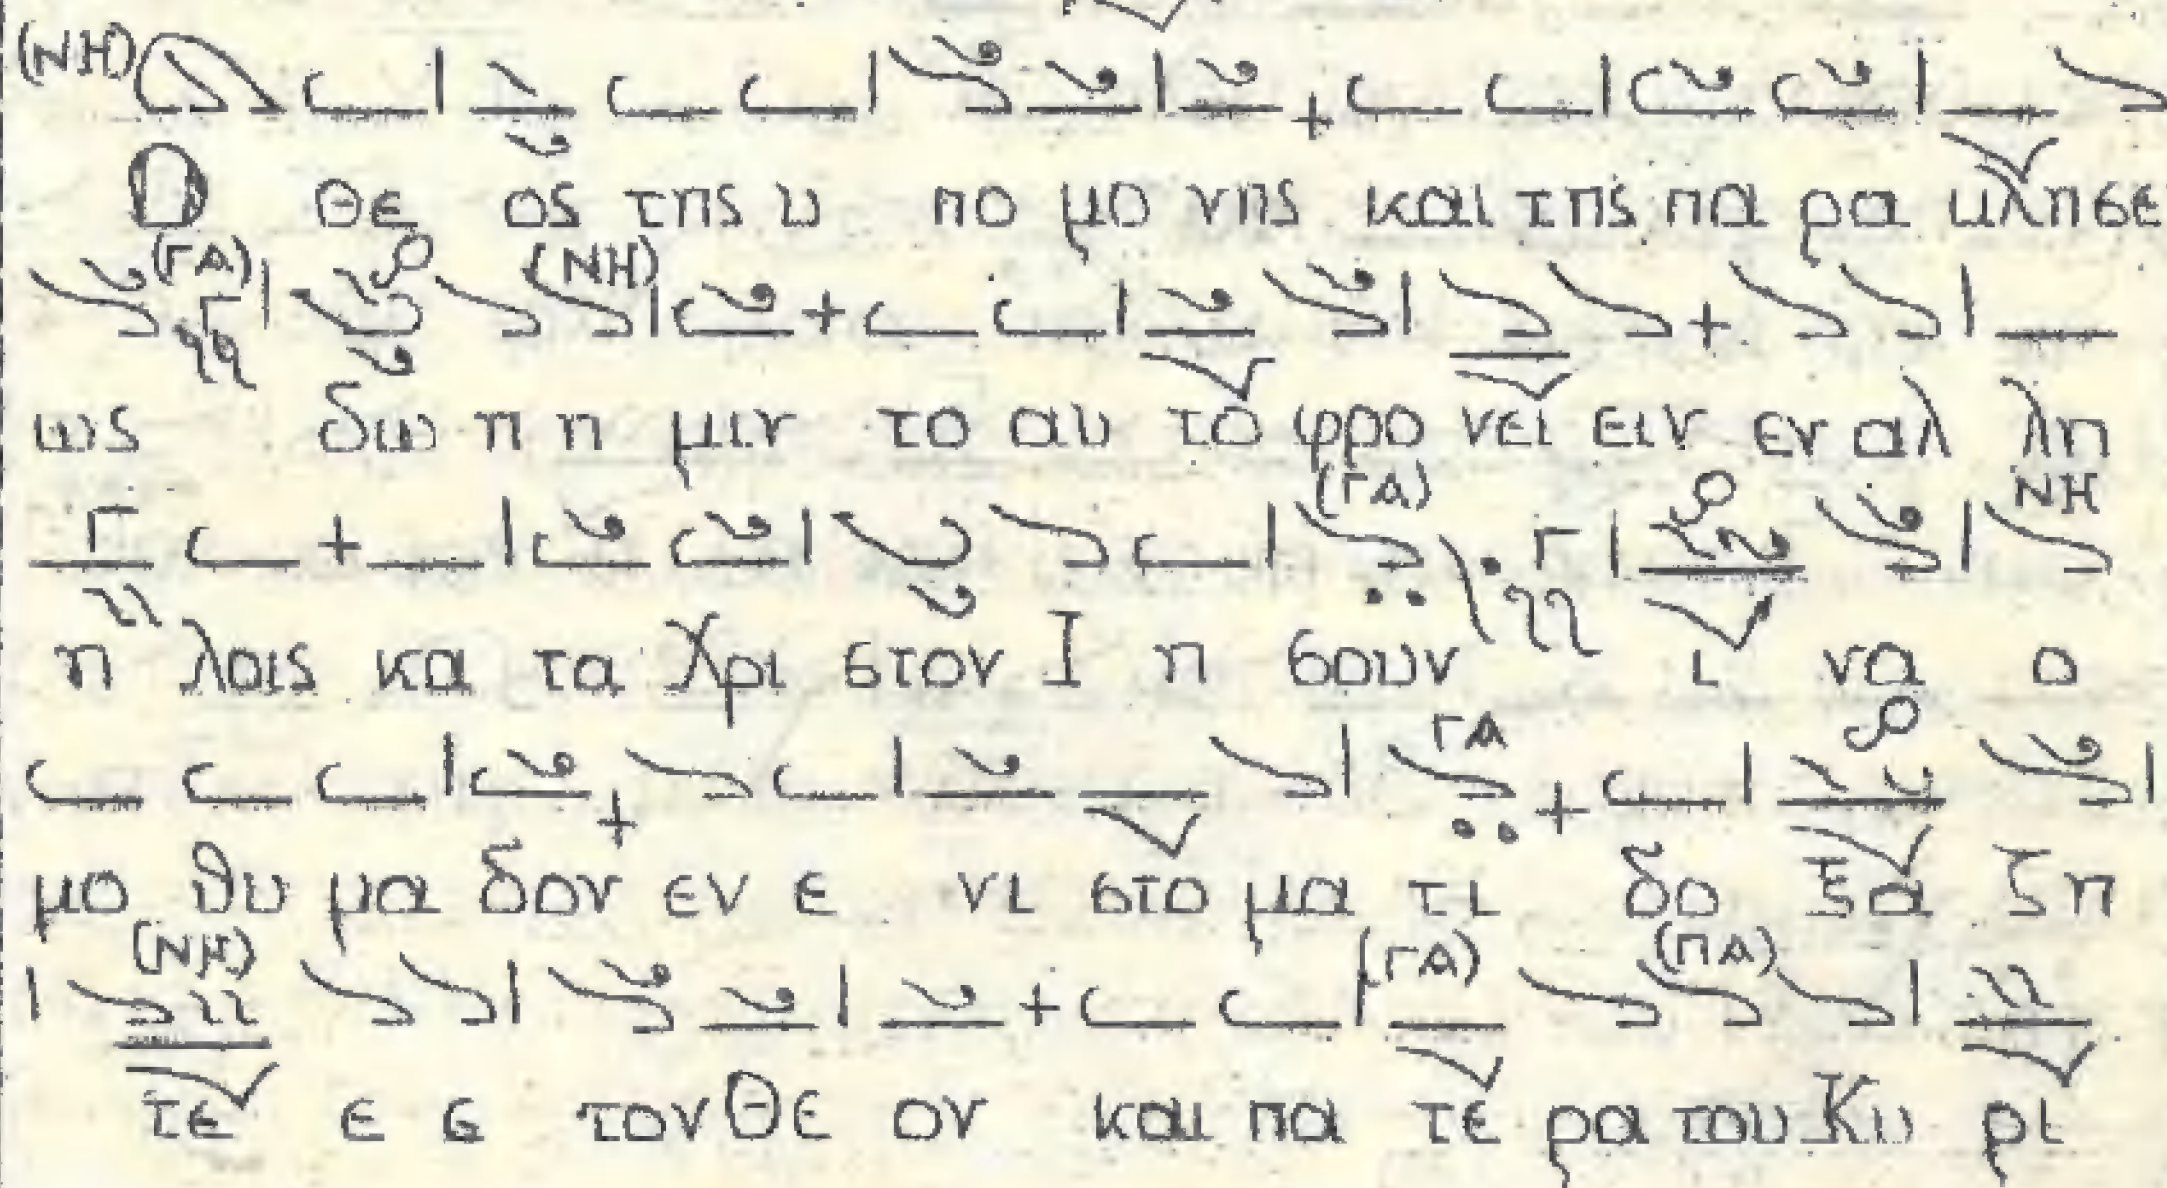 (ΝΗ)
Ο Θε ος της υ πο μο νης και της πα ρα κλησε
(ΓΑ) (ΝΗ)
ως δω η η μιν το αυ το φρο νει ειν εν αλ λη
(ΓΑ) ΝΗ
η λοις κα τα Χρι στον Ι η σουν ι να ο
ΓΑ
μο θυ μα δον εν ε νι στο μα τι δο ξα ζη
(ΝΗ) (ΓΑ) (ΠΑ)
τε ε ε τον Θε ον και πα τε ρα του Κυ ρι